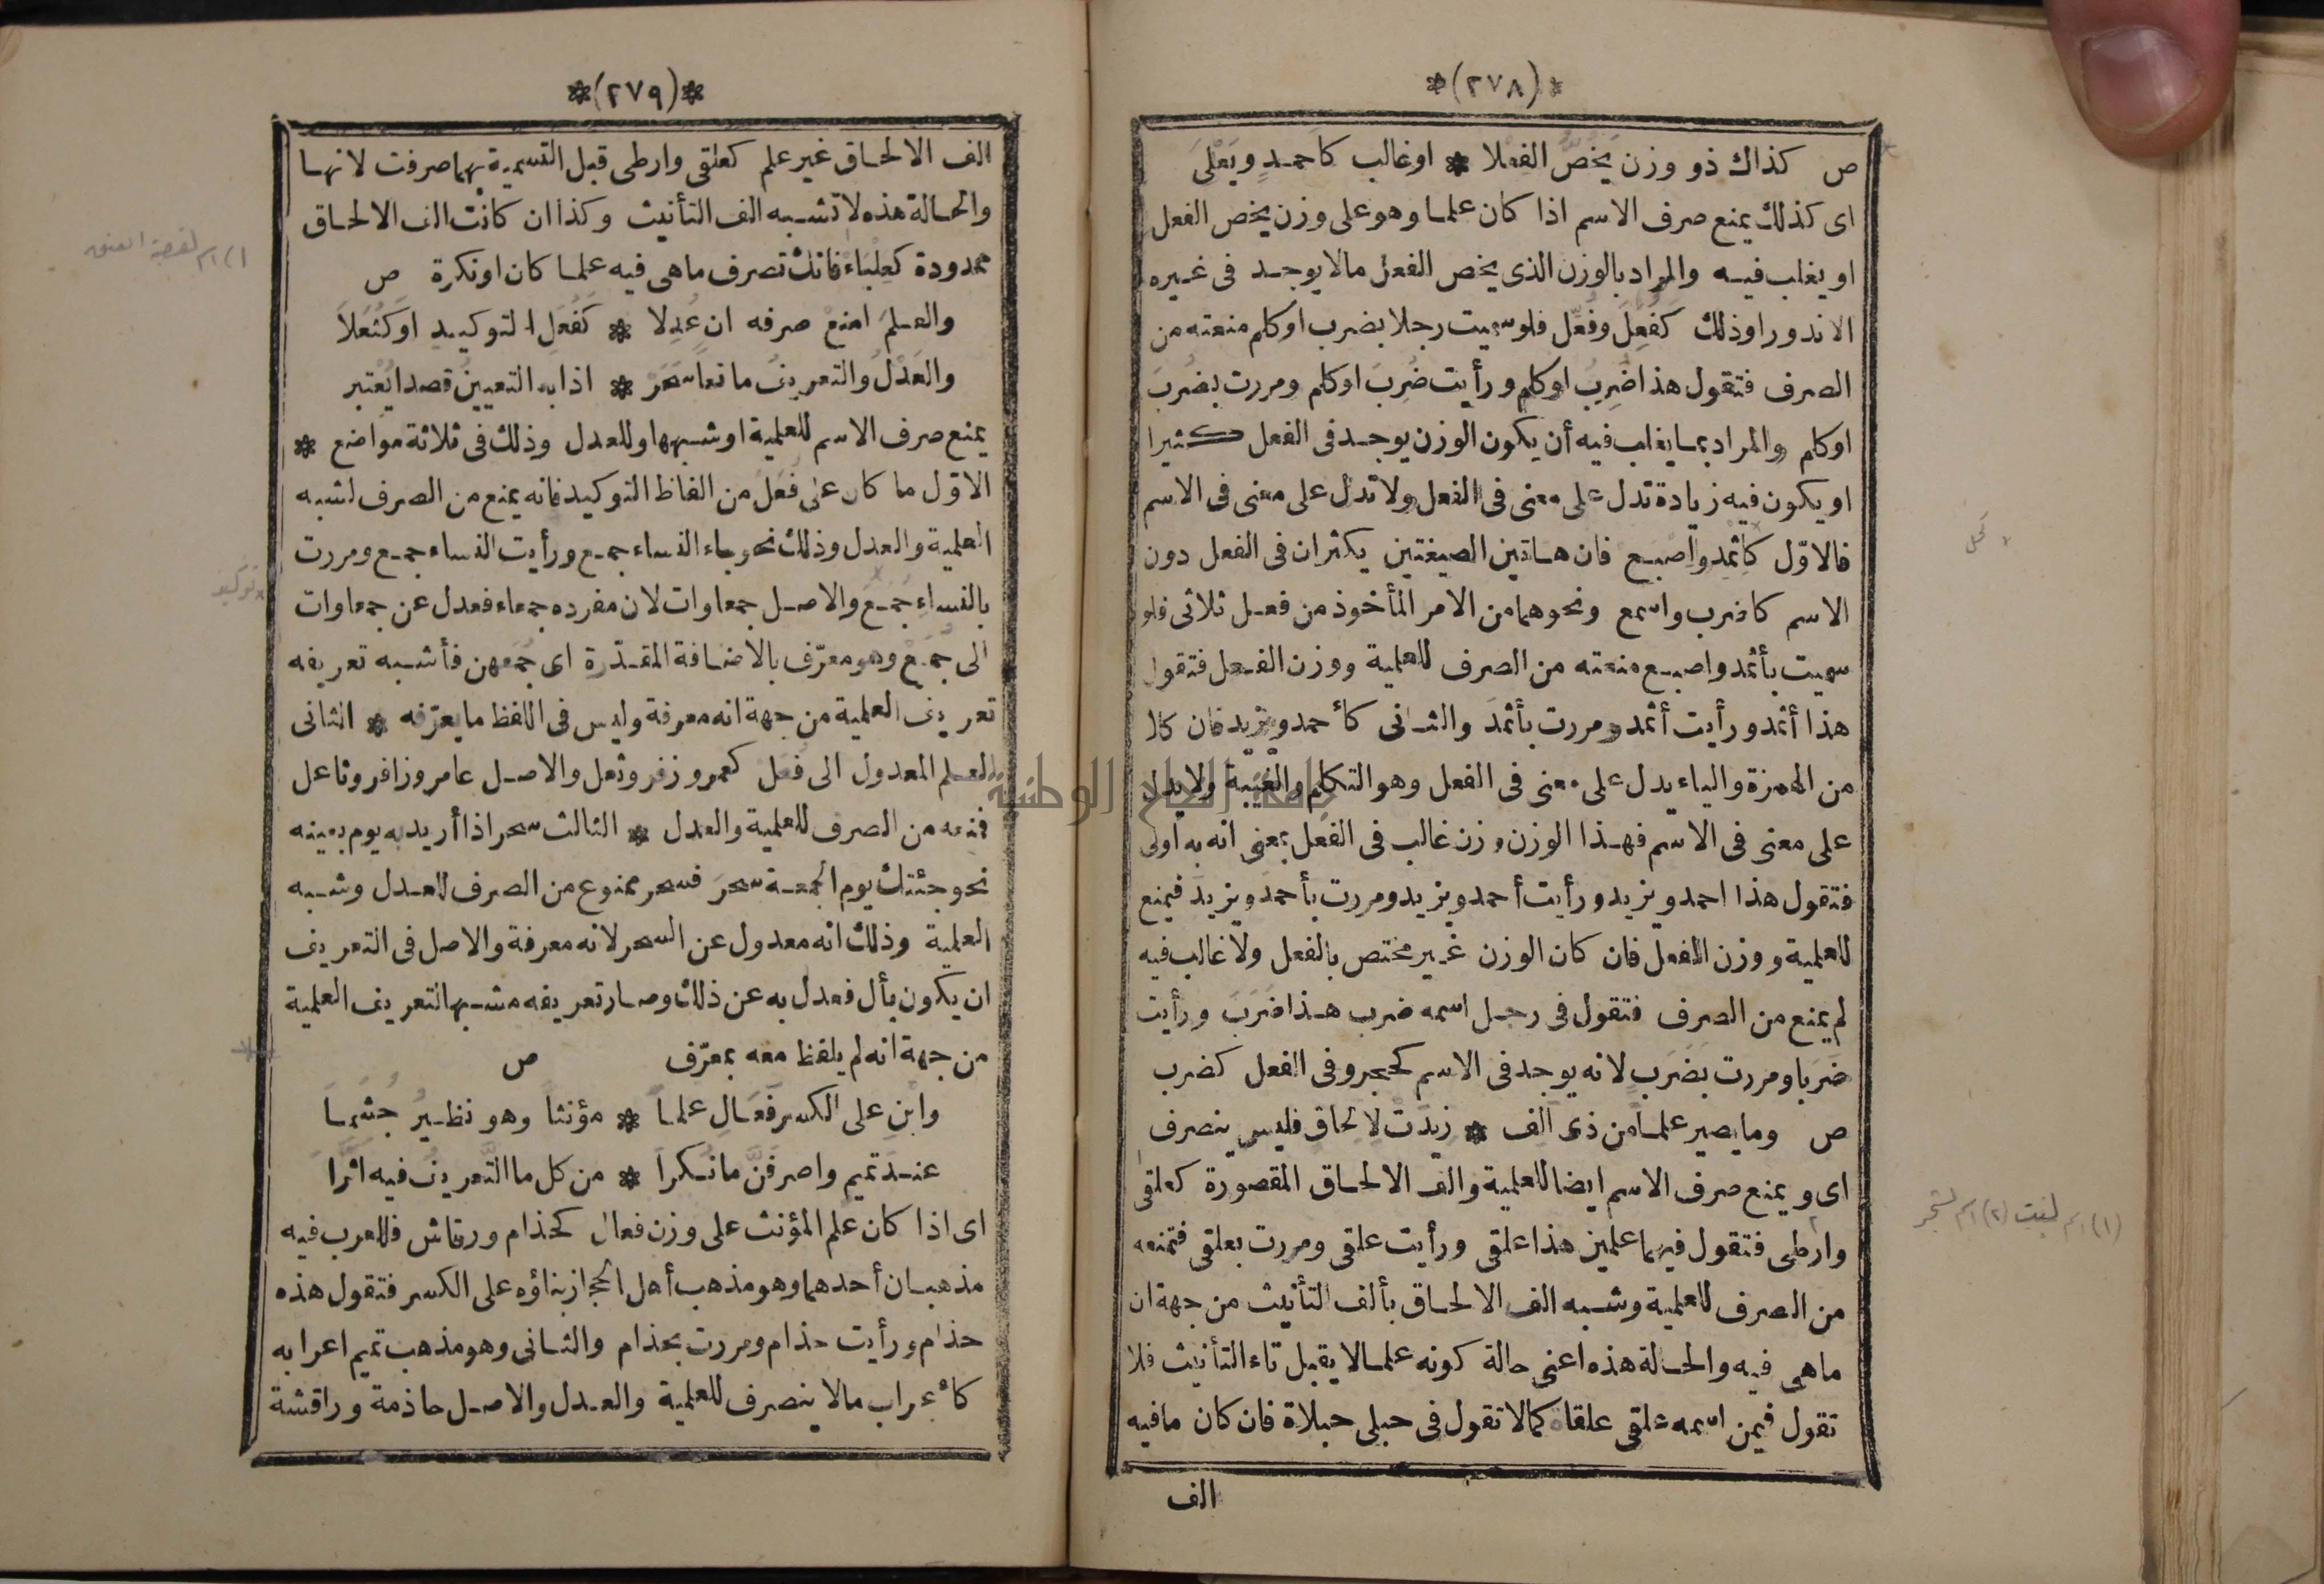 *(٢٧٨)*
ص كذاك ذو وزن يَخُصُّ الفعلا * اوغالب كاحمدٍ ويَعْلَى
اى كذلك يمنع صرف الاسم اذا كان علما وهو على وزن يخص الفعل
او يغلب فيه والمراد بالوزن الذى يخص الفعل مالا يوجد فى غيره
الا ندورا وذلك كفُعِلَ وفُعِّل فلو سميت رجلا بضرب اوكلم منعته من
الصرف فتقول هذا ضُرِبُ اوكلم ورأيت ضُرِبَ اوكلم ومررت بضُرِبَ
اوكلم والمراد بما يغلب فيه أن يكون الوزن يوجد فى الفعل كثيرا
او يكون فيه زيادة تدل على معنى فى الفعل ولا تدل على معنى فى الاسم
فالاوّل كاِثْمِدْ واِصْبَع فان هاتين الصيغتين يكثران فى الفعل دون
الاسم كاضرب واسمع ونحوهما من الامر المأخوذ من فعل ثلاثى فلو
سميت بأثمد واصبع منعته من الصرف للعلمية ووزن الفعل فتقول
هذا أثمد ورأيت أثمد ومررت بأثمدَ والثانى كأحمد ويزيد فان كلا
من الهمزة والياء يدل على معنى فى الفعل وهو التكلم والغيبة ولا يدل
على معنى فى الاسم فهذا الوزن وزن غالب فى الفعل بمعنى انه به اولى
فتقول هذا احمد ويزيد ورأيت أحمد ويزيد ومررت بأحمد ويزيدَ فيمنع
للعلمية ووزن الفعل فان كان الوزن غير مختص بالفعل ولا غالب فيه
لم يمنع من الصرف فتقول فى رجل اسمه ضرب هذا ضَرَبٌ ورأيت
ضَرَبا ومررت بضَرَبٍ لانه يوجد فى الاسم كحجر وفى الفعل كضرب
ص وما يصير علما من ذى الف * زيدَتْ لالحاق فليس ينصرف
اى ويمنع صرف الاسم ايضا للعلمية والف الالحاق المقصورة كعلقى
وارطى فتقول فيهما علمين هذا علقى ورأيت علقى ومررت بعلقى فتمنعه
من الصرف للعلمية وشبه الف الالحاق بألف التأنيث من جهة ان
ماهى فيه والحالة هذه اعنى حالة كونه علما لا يقبل تاء التأنيث فلا
تقول فيمن اسمه علقى علقاة كمالا تقول فى حبلى حبلاة فان كان مافيه
الف
(١) اسم لنبت (٢) اسم لشجر
*(٢٧٩)*
الف الالحاق غير علم كعلقى وارطى قبل التسمية بهما صرفت لانها
والحالة هذه لا تشبه الف التأنيث وكذا ان كانت الف الالحاق
ممدودة كعِلْباء فانك تصرف ماهى فيه علما كان او نكرة ص
والعلمَ امنعْ صرفه ان عُدِلا * كفُعَلِ التوكيدِ اوكثُعَلاَ
والعَدْلُ والتعريفُ مانعا سَحَرْ * اذا به التعيينُ قصدا يُعْتَبر
يمنع صرف الاسم للعلمية او شبهها وللعدل وذلك فى ثلاثة مواضع *
الاوّل ما كان على فُعَلَ من الفاظ التوكيد فانه يمنع من الصرف لشبه
العلمية والعدل وذلك نحو جاء النساء جمع ورأيت النساء جمع ومررت
بالنساءِ جُمَعَ والاصل جمعاوات لان مفرده جمعاء فعدل عن جمعاوات
الى جُمَعَ وهو معرّف بالاضافة المقدّرة اى جُمَعهن فأشبه تعريفه
تعريف العلمية من جهة انه معرفة وليس فى اللفظ ما يعرّفه * الثانى
العلم المعدول الى فُعَل كعمر وزفر وثعل والاصل عامر وزافر وثاعل
فمنعه من الصرف للعلمية والعدل * الثالث سحر اذا أريد به يوم بعينه
نحو جئتك يوم الجمعة سحرَ فسحر ممنوع من الصرف للعدل وشبه
العلمية وذلك انه معدول عن السحر لانه معرفة والاصل فى التعريف
ان يكون بأل فعدل به عن ذلك وصار تعريفه مشبها لتعريف العلمية
من جهة انه لم يلفظ معه بمعرّف ص
وابْنِ على الكسر فَعَالِ علماً * مؤنثا وهو نظيرُ جُشَمَا
عند تميم واصرفَنَّ ما نُكرا * من كل ما التَّعريفُ فيه اثَّرا
اى اذا كان علم المؤنث على وزن فعال كحذام ورقاش فللعرب فيه
مذهبان أحدهما وهو مذهب أهل الحجاز بناؤه على الكسر فتقول هذه
حذام ورأيت حذام ومررت بحذام والثانى وهو مذهب تميم اعرابه
كأعراب مالا ينصرف للعلمية والعدل والاصل حاذمة وراقشة
جامعة النجاح الوطنية